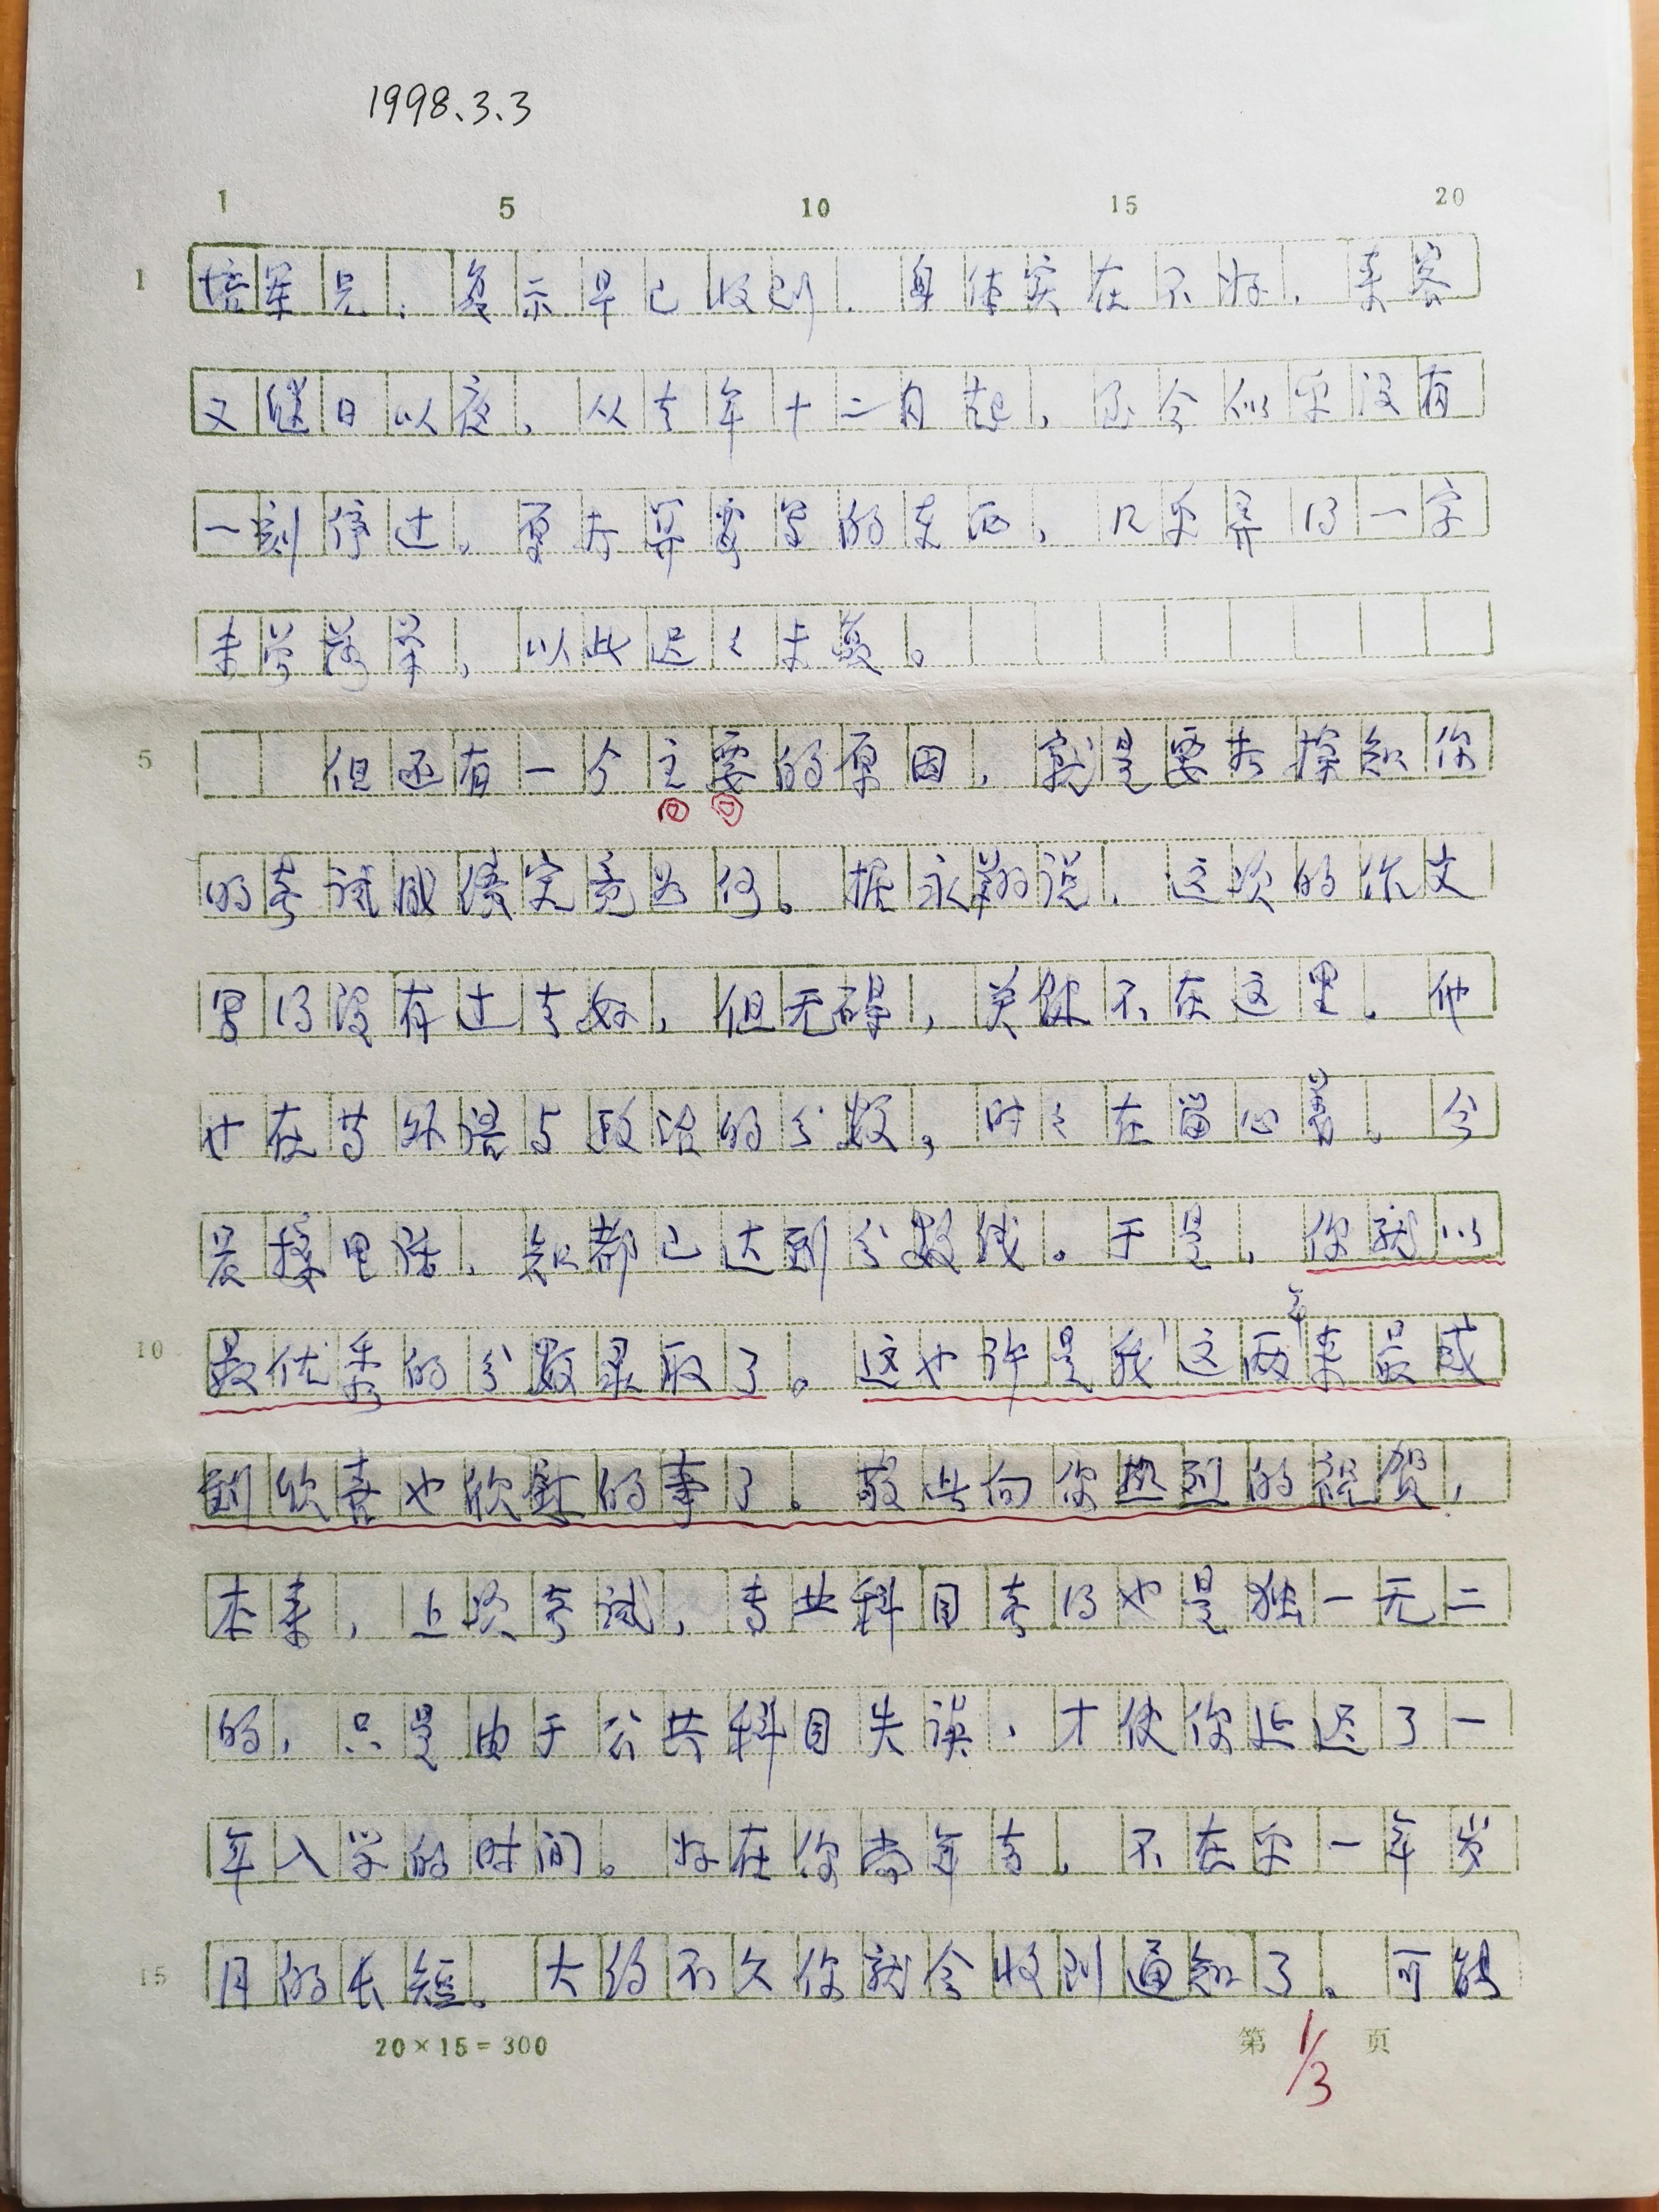 1998.3.3
1 5 10 15 20
1 培军兄:复示早已收到。身体实在不好,来客
又继日以夜,从去年十二月起,至今似乎没有
一刻停过。原来算要写的东西,几乎弄得一字
未曾落笔,以此迟々未复。
5 但还有一个主要的原因,就是要去探知你
的考试成绩究竟如何。据永翔说,这次的作文
写得没有过去好,但无碍,关键不在这里。他
也在等外语与政治的分数,时々在留心着。今
晨接电话,知都已达到分数线。于是,你就以
10 最优秀的分数录取了。这也许是我这两年来最感
到欣喜也欣慰的事了。敬此向你热烈的祝贺,
本来,上次考试,专业科目考得也是独一无二
的,只是由于公共科目失误,才使你延迟了一
年入学的时间。好在你尚年青,不在乎一年岁
15 月的长短。大约不久你就会收到通知了。可能
20×15=300 第 1/3 页